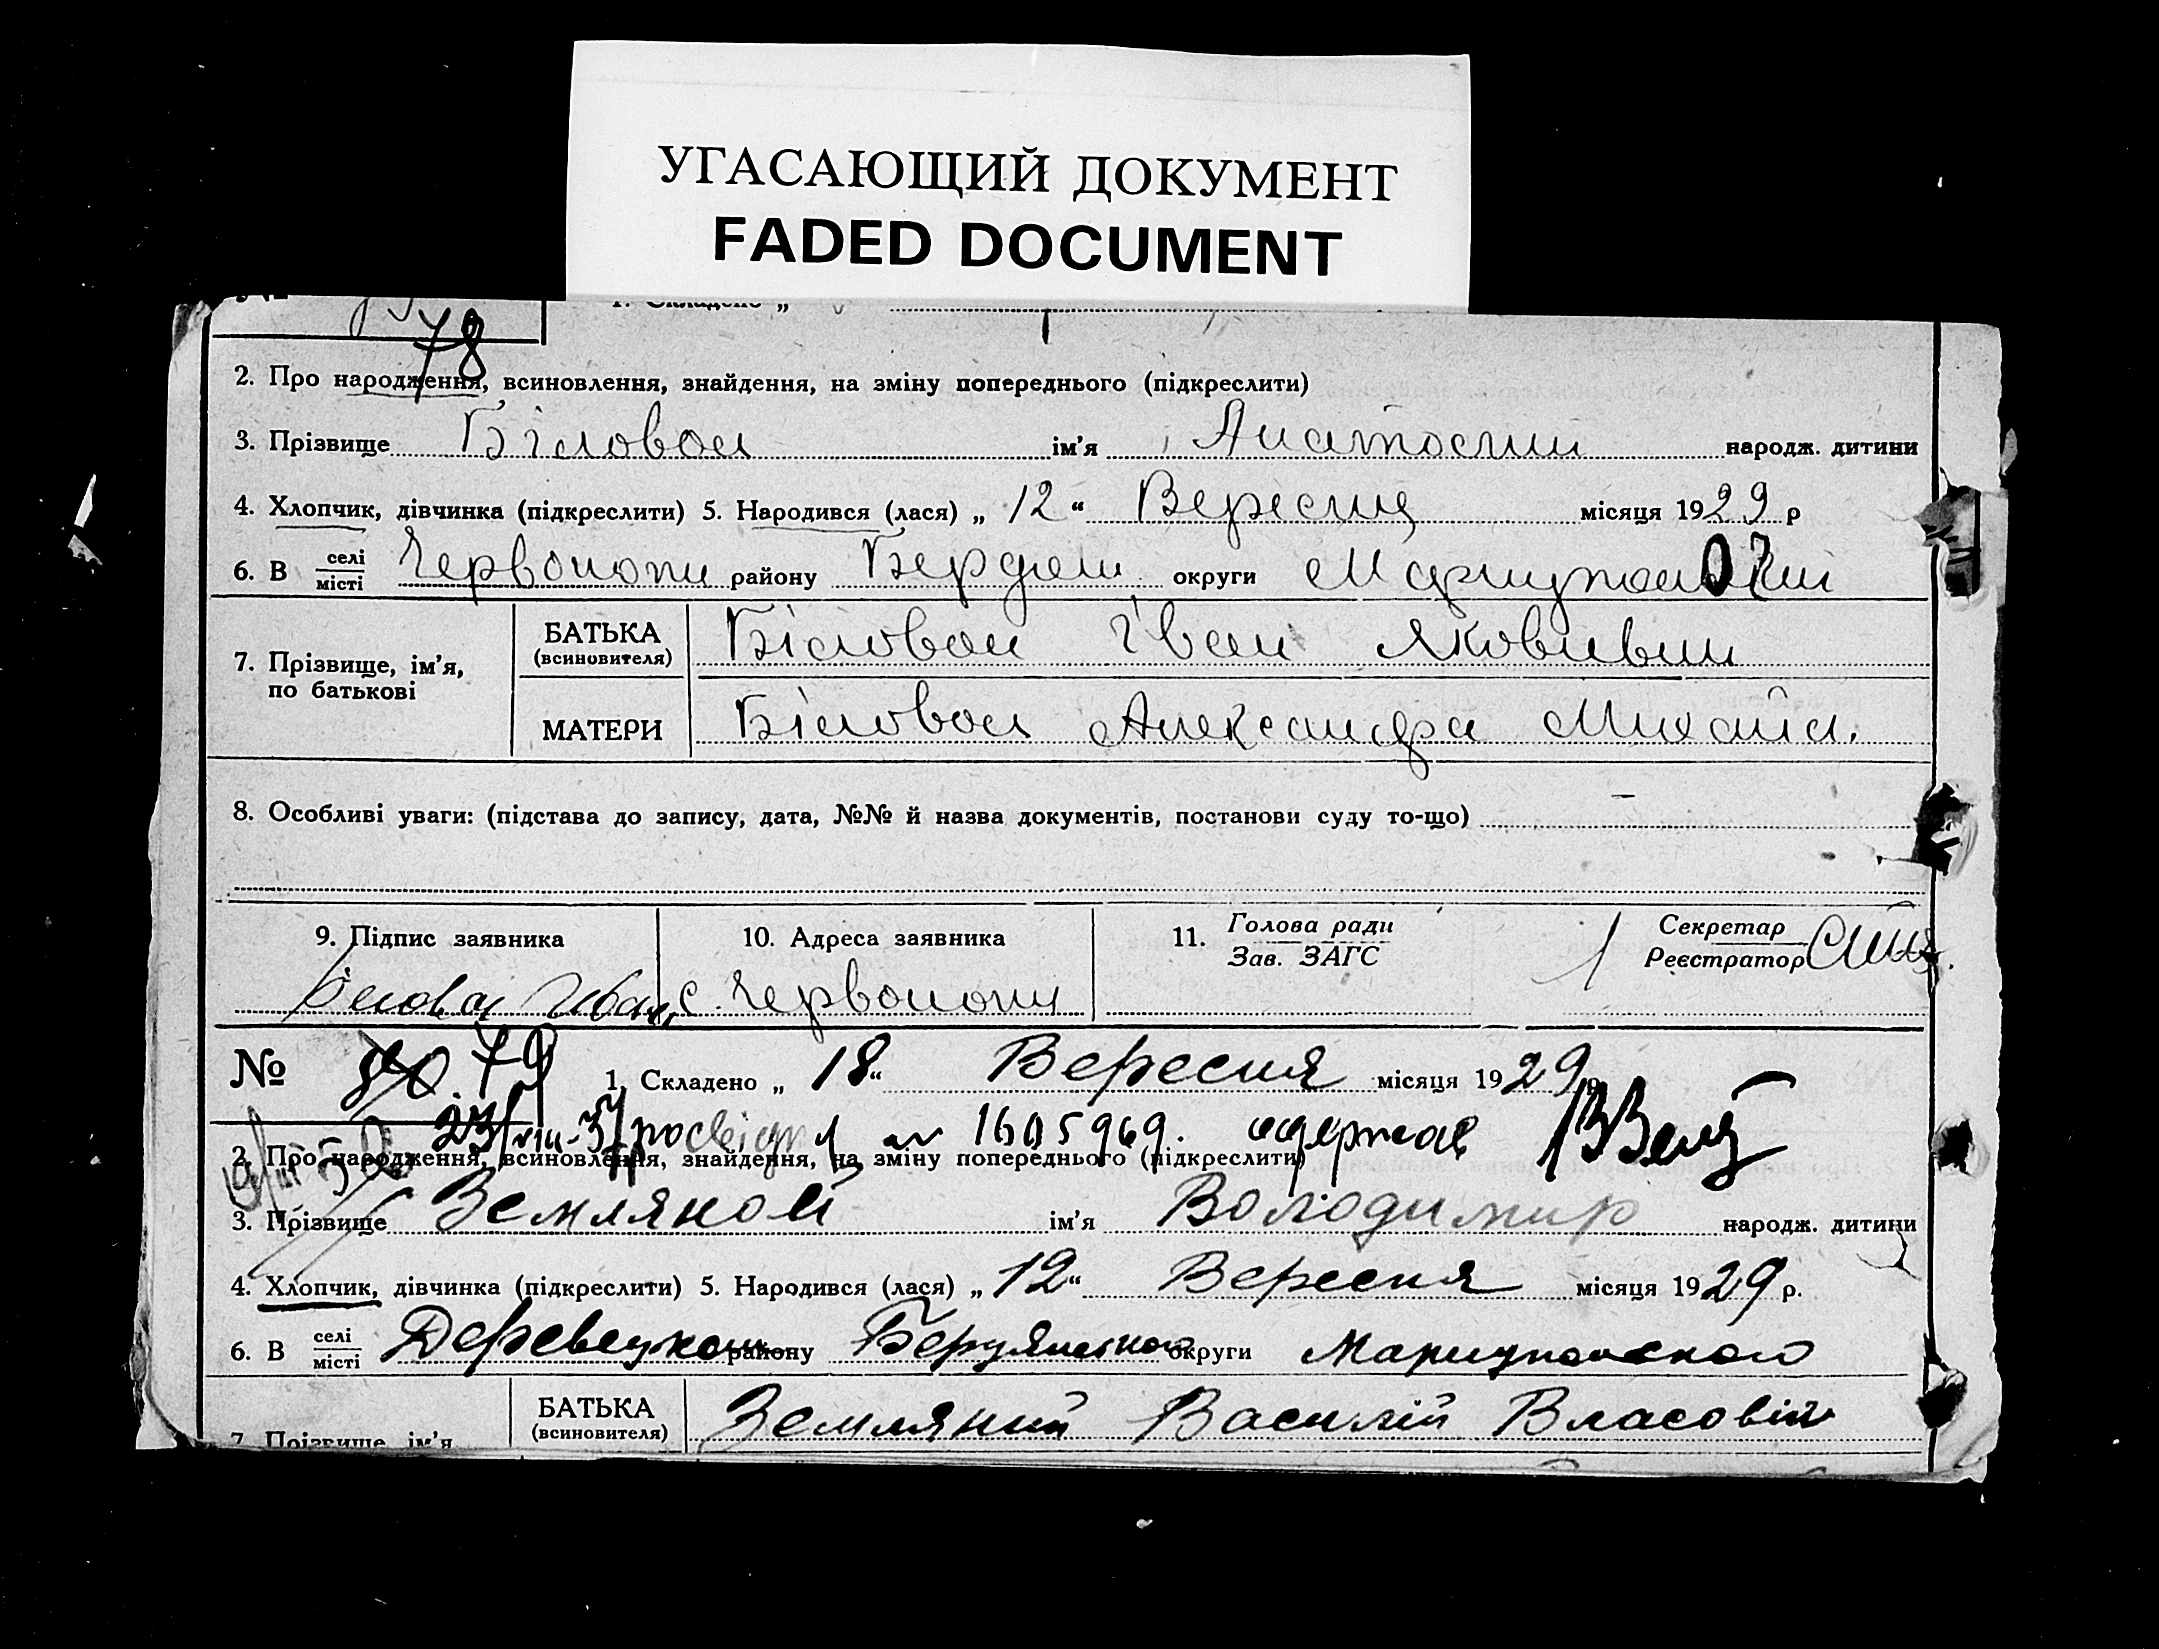 УГАСАЮЩИЙ ДОКУМЕНТ
FADED DOCUMENT
1. Складено „
78
2. Про народження, всиновлення, знайдення, на зміну попереднього (підкреслити)
3. Прізвище Біловол ім'я Анатолий народж. дитини
4. Хлопчик, дівчинка (підкреслити) 5. Народився (лася) „ 12 “ Вересня місяця 1929 р
6. В селі місті Червонопіл району Бердян округи
7. Прізвище, ім'я, по батькові
БАТЬКА (всиновителя) Біловол Іван Яковивич
МАТЕРИ Біловол Александра Михайл.
8. Особливі уваги: (підстава до запису, дата, №№ й назва документів, постанови суду то-що)
9. Підпис заявника 10. Адреса заявника 11. Голова ради Зав. ЗАГС Секретар Реєстратор
Іван с.
№ 79 1. Складено „ 18 “ Вересня місяця 1929 р
23/VIII-37 1605969.
2. Про народження, всиновлення, знайдення, на зміну попереднього (підкреслити)
3. Прізвище Земляной ім'я Володимир народж. дитини
4. Хлопчик, дівчинка (підкреслити) 5. Народився (лася) „ 12 “ Вересня місяця 1929 р.
6. В селі місті району Бердянського округи Мариупольского
7. Прізвище, ім'я
БАТЬКА (всиновителя) Земляний Василій Власовіч